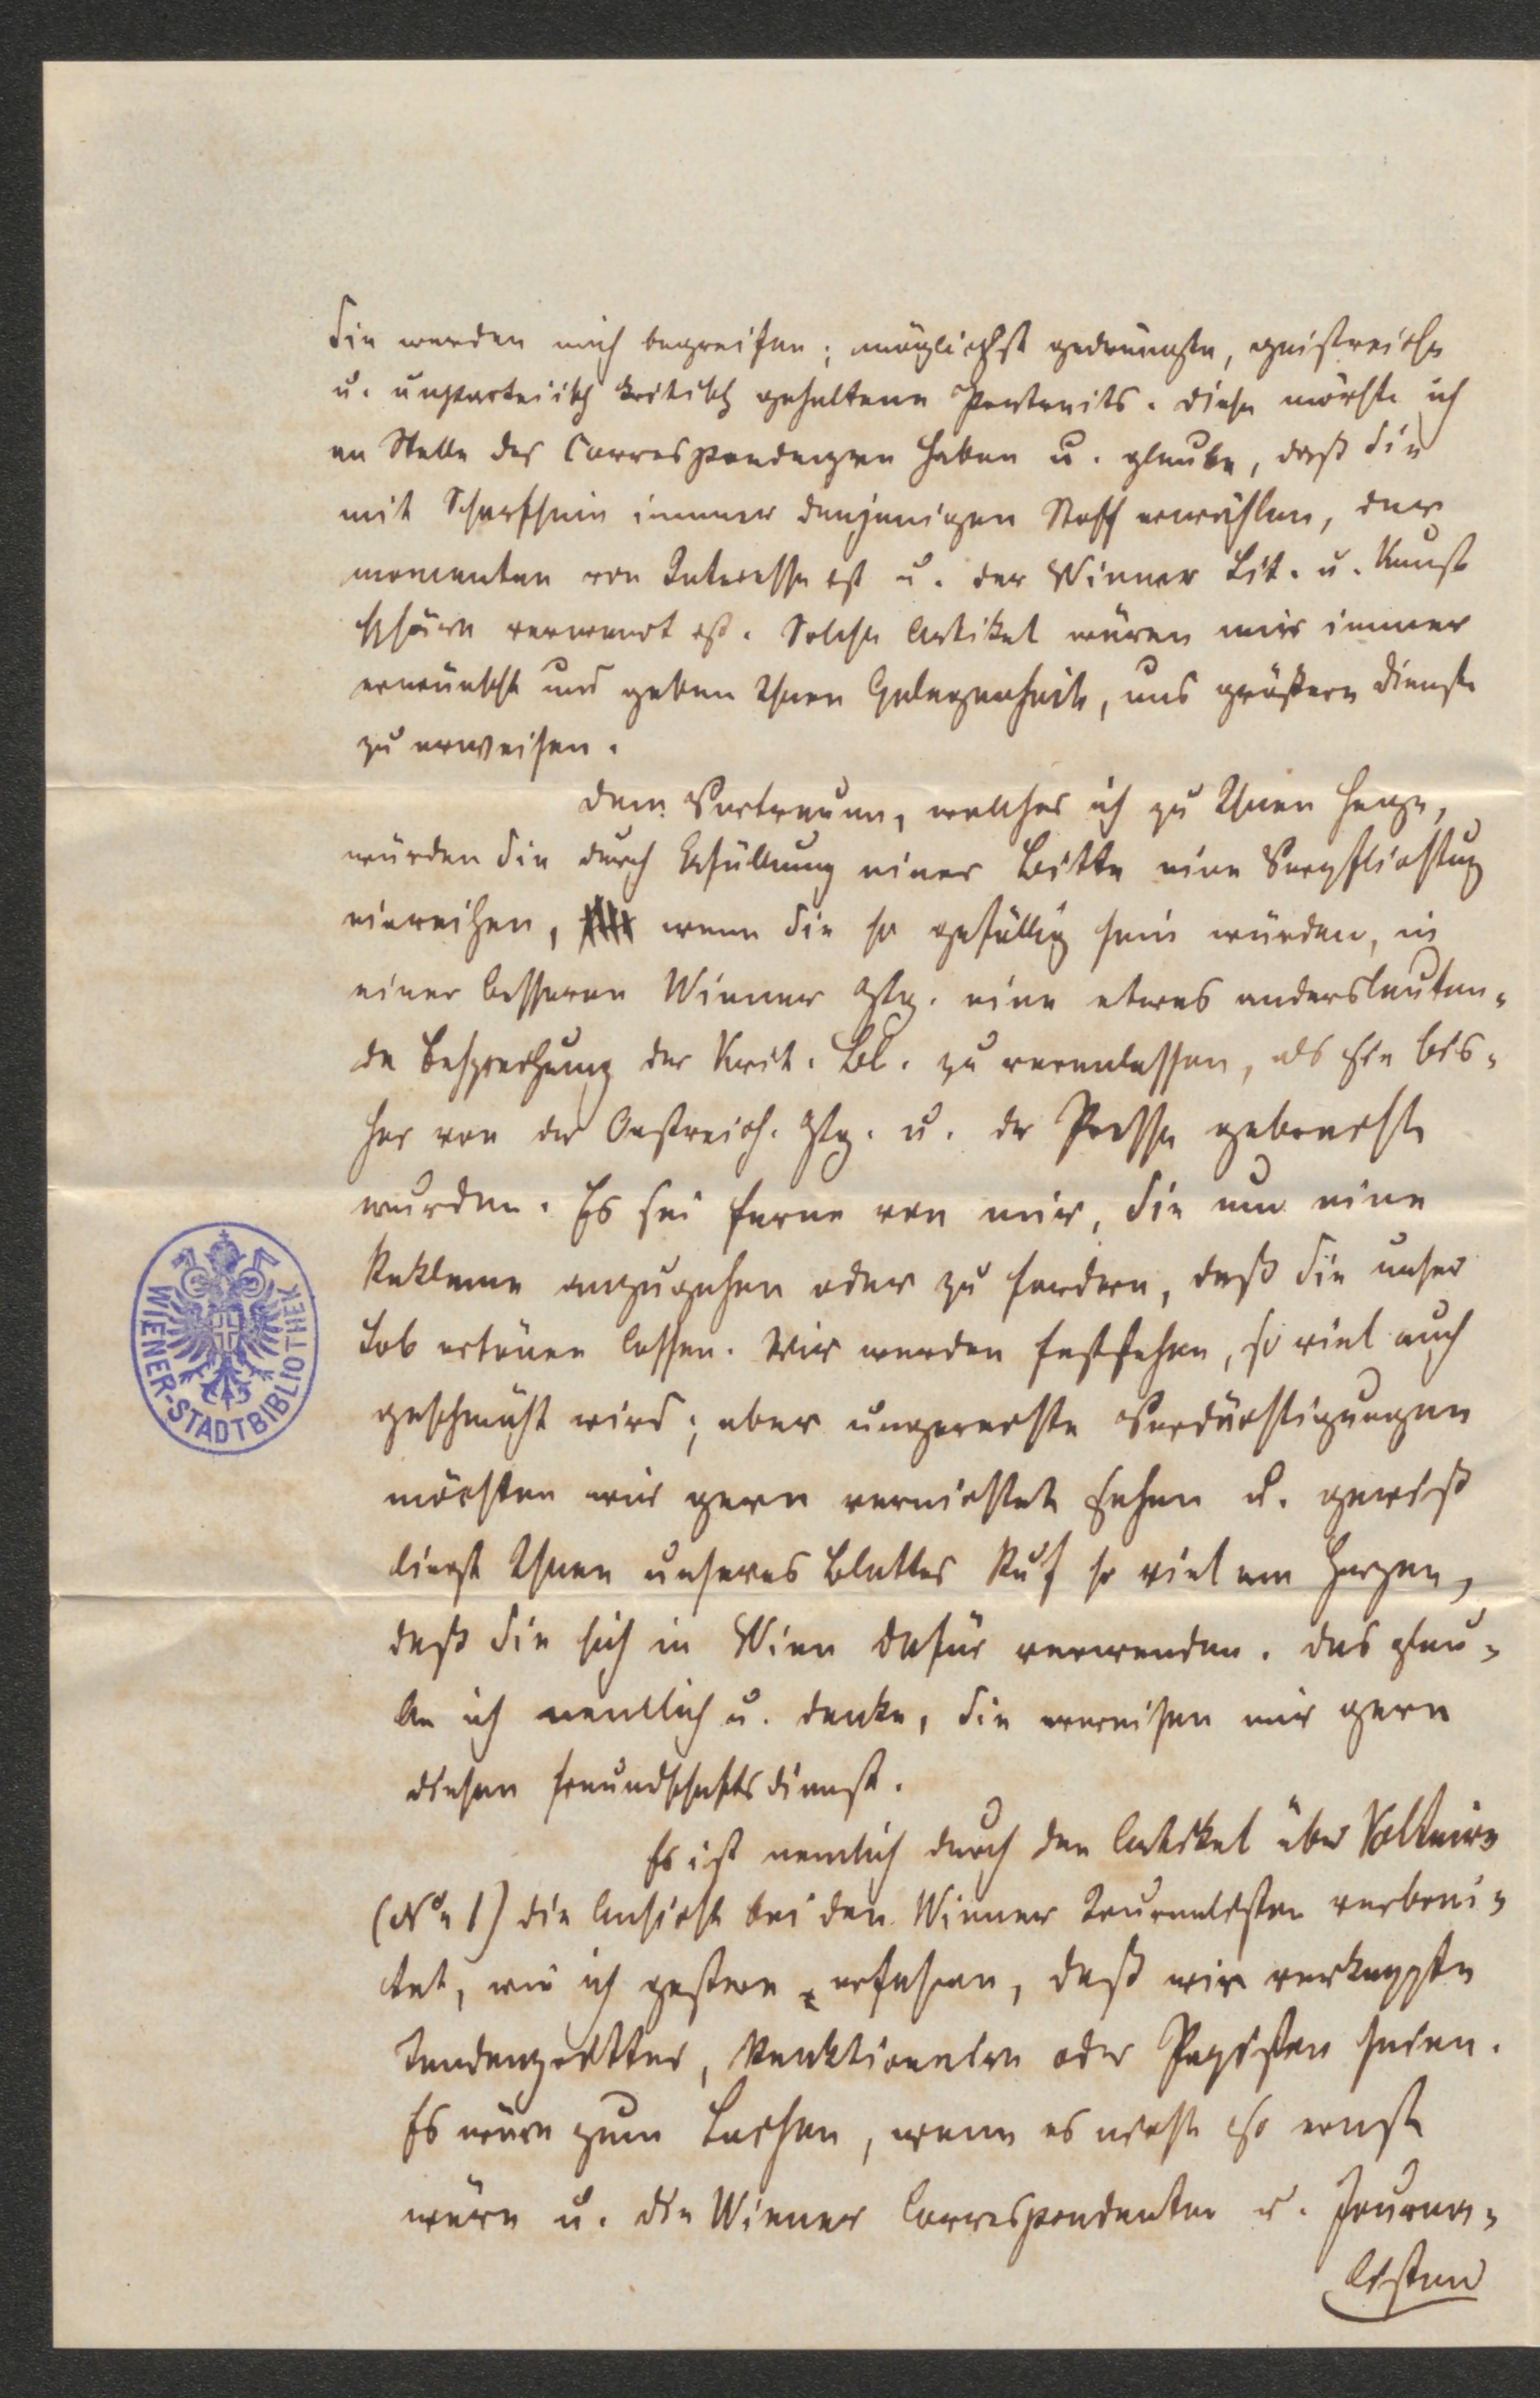 Sie werden mich begreifen; möglichst gedrängte, geistreiche
u. unparteiisch kritisch gehaltene Portraits. Diese möchte ich
an Stelle der Correspondenzen haben u. glaube, daß Sie
mit Scharfsinn immer denjenigen Stoff erwählen, der
momentan von Interesse ist u. der Wiener Lit. u. Kunst
sphäre verwandt ist. Solche Artikel wären mir immer
erwünscht und geben Ihnen Gelegenheit, uns größere Dienste
zu erweisen.
Dem Vertrauen, welches ich zu Ihnen hege,
würden Sie durch Erfüllung einer Bitte eine Verpflichtung
einreihen, wenn Sie so gefällig sein würden, in
einer besseren Wiener Ztg. eine etwas anderslauten=
de Besprechung der Krit. Bl. zu veranlassen, als sie bis=
her von der Oestreich. Ztg. u. der Presse gebracht
wurden. Es sei ferne von mir, Sie um eine
Reklame anzugehen oder zu fordern, daß Sie unser
Lob ertönen lassen. Wir werden feststehen, so viel auch
geschmäht wird; aber ungerechte Verdächtigungen
möchten wir gern vernichtet sehen u. gewiß
liegt Ihnen unseres Blattes Ruf so viel am Herzen,
daß Sie sich in Wien dafür verwenden. Das glau=
be ich nemlich u. denke, Sie erweisen mir gern
diesen Freundschaftsdienst.
Es ist nemlich durch den Artikel über Voltaire
(No 1) die Ansicht bei den Wiener Journalisten verbrei=
tet, wie ich gestern erfahren, daß wir verkappte
Tendenzritter, Reaktionaire oder Papisten seien.
Es wäre zum Lachen, wenn es nicht so ernst
wäre u. die Wiener Correspondenten u. Journa=
listen
WIENER-STADTBIBLIOTHEK